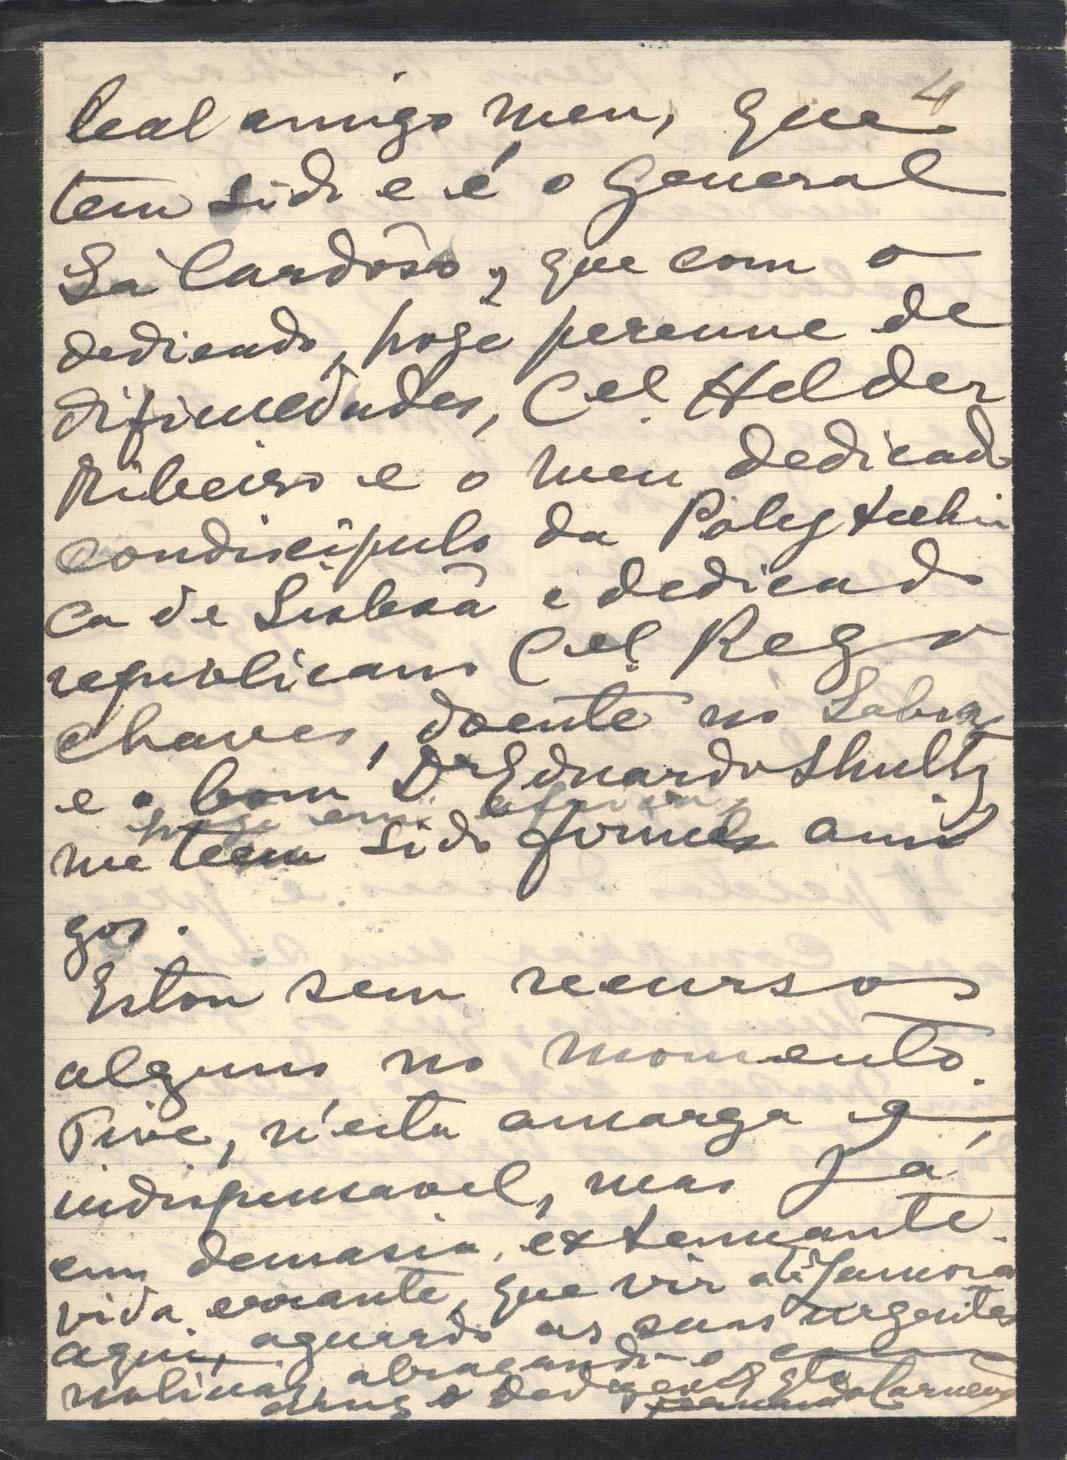 4
leal amigo meu, que
tem sido e é o General
Sá Cardôso, que com o
dedicado, hoje perenne de
Cel. Helder
Ribeiro e o meu dedicado
condiscípulo da Polytechni
ca de Lisboâ e dedicado
republicano Cel. Rego
Chaves, doente no Sabugo
e o bom Dr Eduardo Shultz
hoje em
me teem sido firmes ami
gos.
Estou sem recursos
alguns no momento.
Tive, n'esta amarga e,
indispensavel, mas já
em demasia, extenuante
vida errante, que vir até Zamora
aqui, aguardo as suas urgentes
noticias, abraçando-o
amigo